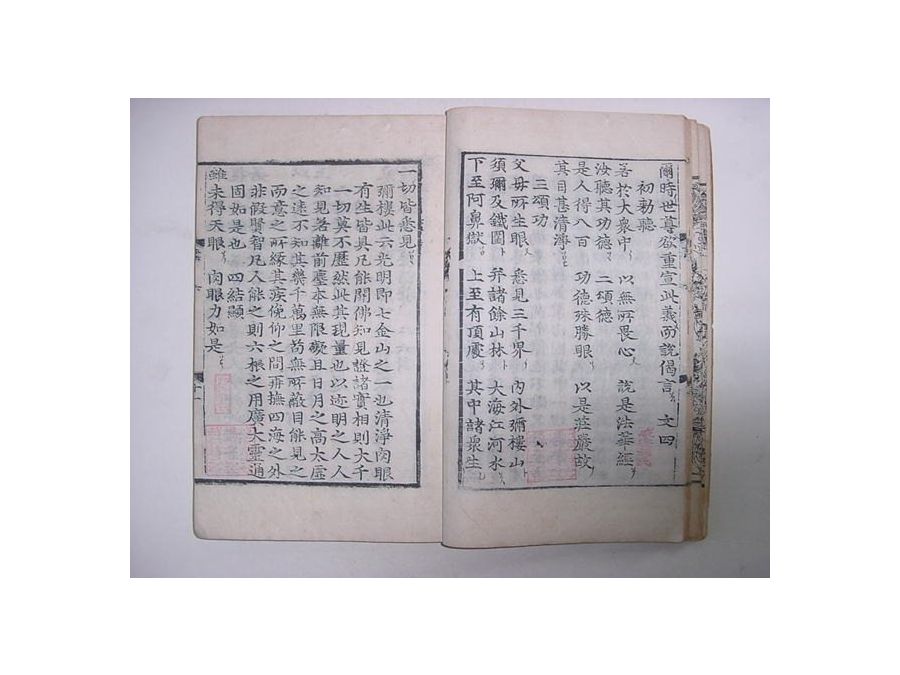 爾時世尊欲重宣此義而說偈言 文四
初勑聽
若於大衆中 以無所畏心 說是法華經
汝聽其功德 二頌德
是人得八百 功德殊勝眼 以是莊嚴故
其目甚清淨
三頌功
父母所生眼 悉見三千界 內外彌樓山
須彌及鐵圍 并諸餘山林 大海江河水
下至阿鼻獄 上至有頂處 其中諸衆生
一切皆悉見
彌樓此云光明即七金山之一也清淨肉眼
有生皆具凡能開佛知見證諸實相則大千
一切莫不歷然此其現量也以迹明之人人
知見若離前塵本無限礙且日月之高太虛
之遠不知其幾千萬里苟無所蔽目能見之
而意之所緣其疾俛仰之間再撫四海之外
非假賢智凡人能之則六根之用廣大靈通
固如是也 四結顯
雖未得天眼 肉眼力如是